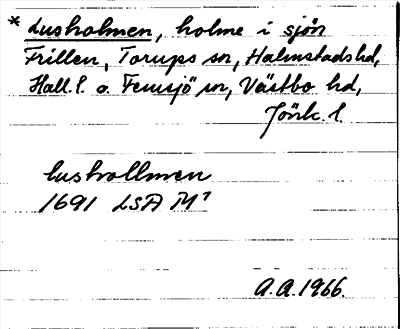 * Lusholmen, holme i sjön
Frillen, Torups sn, Halmstads hd,
Hall. l. o. Femsjö sn, Västbo hd,
Jönk. l.
lushollmen
1691 LSA M⁷
A.A. 1966.